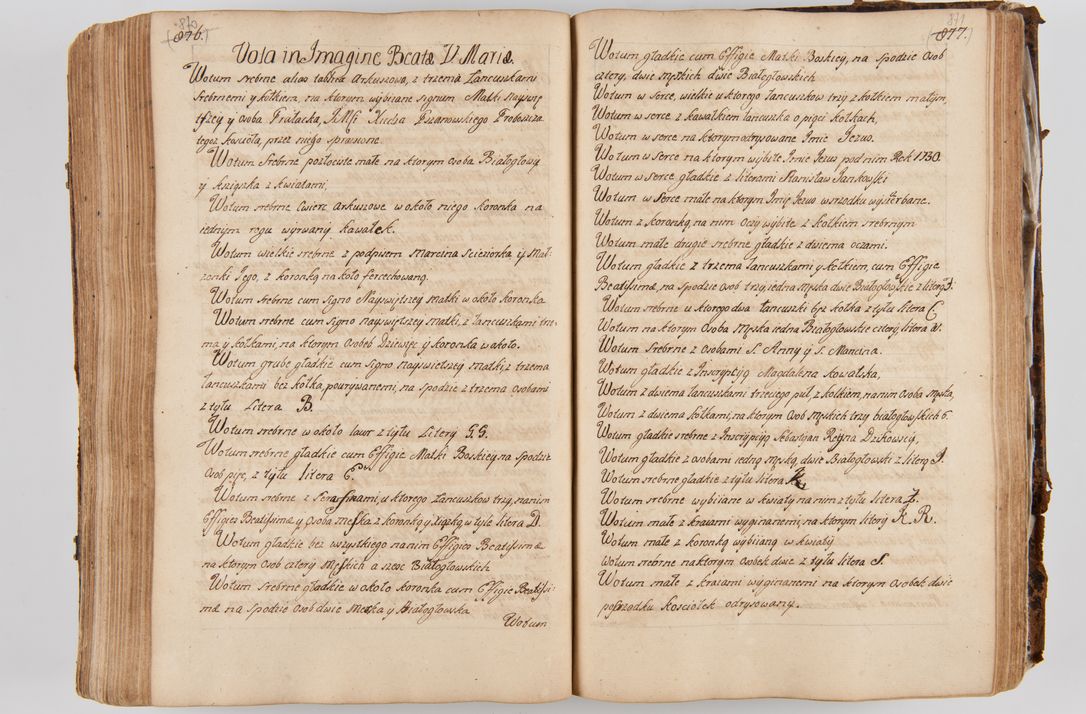 870
876.
Vota in Imagine Beatæ V. Mariæ.
Wotum srebrne alias tablica Arkuszowa, z trzema Łancuszkami
srebrnemi y kołkiem, na ktorym wybiiane signum Matki Nayswię
tszey y osoba Prałacka, JMći Xiędza Pszanowskiego Proboszcza
tegoż kościoła, przez niego sprawione.
Wotum srebrne pozłociste małe na ktorym osoba Białogłowy
y Xsiąszka z kwiatami,
Wotum srebrne Cwierc Arkuszowe w około niego koronka na
iednym rogu wyrwany kawałek.
Wotum wielkie srebrne z podpisem Marcina Scieżorka y Mał-
zonki Jego, z koronką na koło fercechowaną.
Wotum srebrne cum Signo Nayswiętszey Matki w około koronka
Wotum srebrne cum Signo Nayswiętszey Matki, z Łancuszkami trze-
ma y kołkami, na ktorym Osobeb Dziewięc y koronka w około.
Wotum grube gładkie cum Signo Nayswiętszey Matki z trzema
Łancuszkami bez kołka, pourywanemi, na spodzie z trzema osobami
z tyłu Litera B.
Wotum srebrne w około laur z tyłu Litery G. G.
Wotum srebrne gładkie cum Effigie Matki Boskiey na spodzie
Osob pięc, z tyłu litera C.
Wotum srebrne z Serafinami, u ktorego Łancuszkow trzy, nanim
Effigies Beatissimæ y Osoba meska z koronką y xiązką w tyle litera D.
Wotum gładkie bez wszystkiego nanim Effigies Beatissimæ
na ktorym Osob cztery Męskich a szesc Białogłowskich
Wotum srebrne gładkie w około koronka cum Effigie Beatissi-
mæ na spodzie Osob dwie Męska y Białogłowska
Wotum
871
877.
Wotum gładkie cum Effigie Matki Boskiey, na spodzie Osob
cztery, dwie męskich dwie Białogłowskich
Wotum w serce, wielkie u ktorego łancuszkow trzy z kołkiem małym,
Wotum w serce z kawałkiem łancuszka o pięci kołkach,
Wotum w serce na ktorym odrysowane Imie Jezus.
Wotum w serce na ktorym wybite Imie Jezus pod nim Rok 1730.
Wotum w serce gładkie z literami Stanisław Jankowski
Wotum w serce małe na ktorym Imię Jezus w srzodku wyszerbane.
Wotum z koronką, na nim Oczy wybite z kołkiem srebrnym
Wotum małe drugie srebrne gładkie z dwiema oczami.
Wotum gładkie z trzema łancuszkami y kołkiem, cum Effigie
Beatissimæ, na spodzie osob trzy, iedna męska dwie Białogłowskie z literą F.
Wotum srebrne u ktorego dwa łancuszki bez kołka z tyłu litera C
Wotum na ktorym Osoba męska iedna Białogłowskie cztery, litera W.
Wotum srebrne z Osobami S. Anny y S. Marcina.
Wotum gładkie z Inscrypcyą Magdalena Kowalska,
Wotum z dwiema łancuszkami trzeciego puł, z kołkiem, nanim osoba męska,
Wotum z dwiema kołkami, na ktorym Osob męskich trzy białogłowskich 6.
Wotum gładkie srebrne z Inscrypcyą Sebastyan Reyna Dzikowscy,
Wotum gładkie z osobami iedną męską, dwie Białogłowski z literą J.
Wotum srebrne gładkie z tyłu litera K.
Wotum srebrne wybiiane w kwiaty na nim z tyłu litera L.
Wotum małe z kraiami wyginanemi, na ktorym litery K R.
Wotum małe z koronką wybiianą w kwiaty
Wotum srebrne na ktorym osobek dwie z tyłu litera S.
Wotum małe z kraiami wyginanemi na ktorym Osobek dwie
posrzodku kosciołek odrysowany.